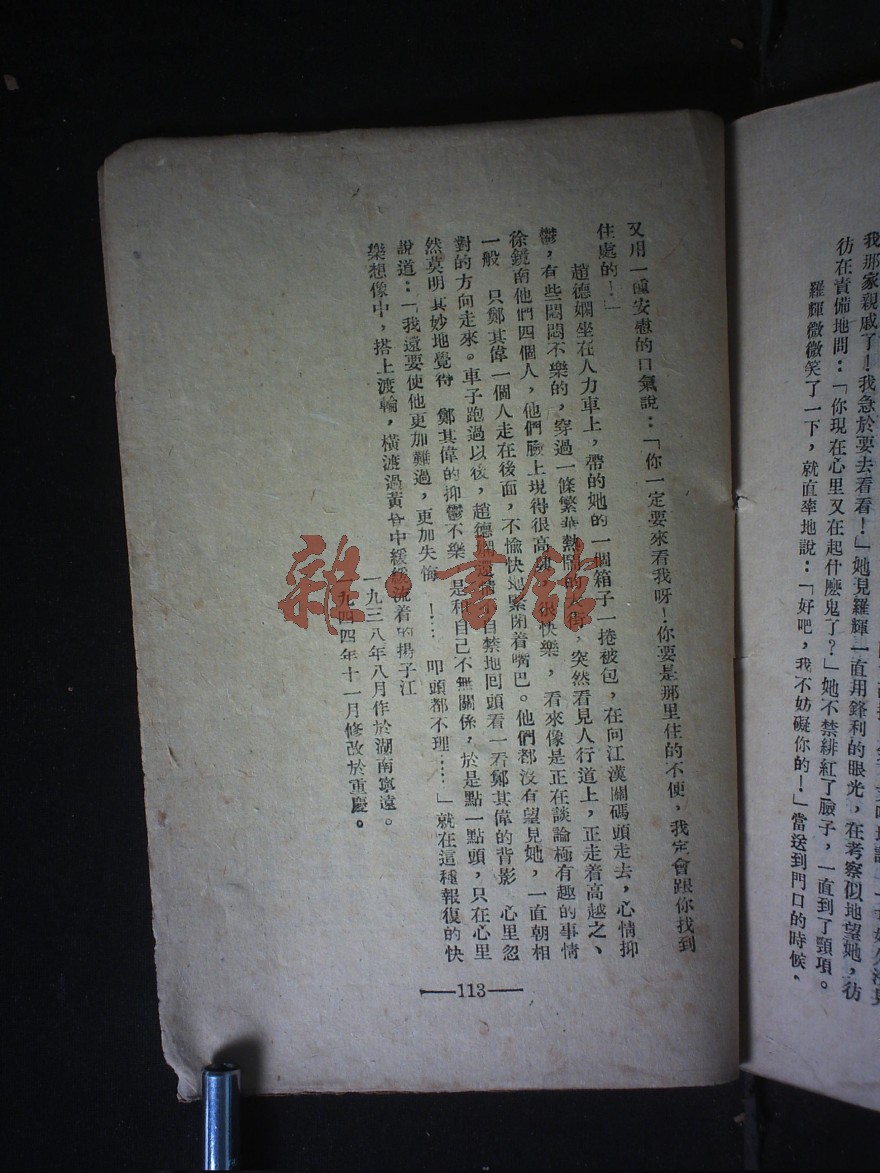 我那家親戚了！我急於要去看看！」她見羅輝一直用鋒利的眼光，在考察似地望她，彷
彷在責備地問：「你現在心里又在起什麼鬼了？」她不禁緋紅了臉子，一直到了頸項。
羅輝微微笑了一下，就直率地說：「好吧，我不妨礙你的！」當送到門口的時候，
又用一種安慰的口氣說：「你一定要來看我呀！你要是那里住的不便，我定會跟你找到
住處的！」
趙德嫻坐在人力車上，帶的她的一個箱子一捲被包，在向江漢關碼頭走去，心情抑
鬱，有些悶悶不樂的，穿過一條繁華熱鬧的大街，突然看見人行道上，正走着高越之、
徐鏡南他們四個人，他們臉上現得很高興，很快樂，看來像是正在談論極有趣的事情
一般　只鄭其偉一個人走在後面，不愉快地緊閉着嘴巴。他們都沒有望見她，一直朝相
對的方向走來。車子跑過以後，趙德嫻還情不自禁地回頭看一看鄭其偉的背影　心里忽
然莫明其妙地覺得　鄭其偉的抑鬱不樂　是和自己不無關係，於是點一點頭，只在心里
說道：「我還要使他更加難過，更加失悔　！…　叩頭都不理……」就在這種報復的快
樂想像中，搭上渡輪，橫渡過黃昏中緩緩流着的揚子江
一九三八年八月作於湖南寧遠。
一九四四年十一月修改於重慶。
113
雜·書館